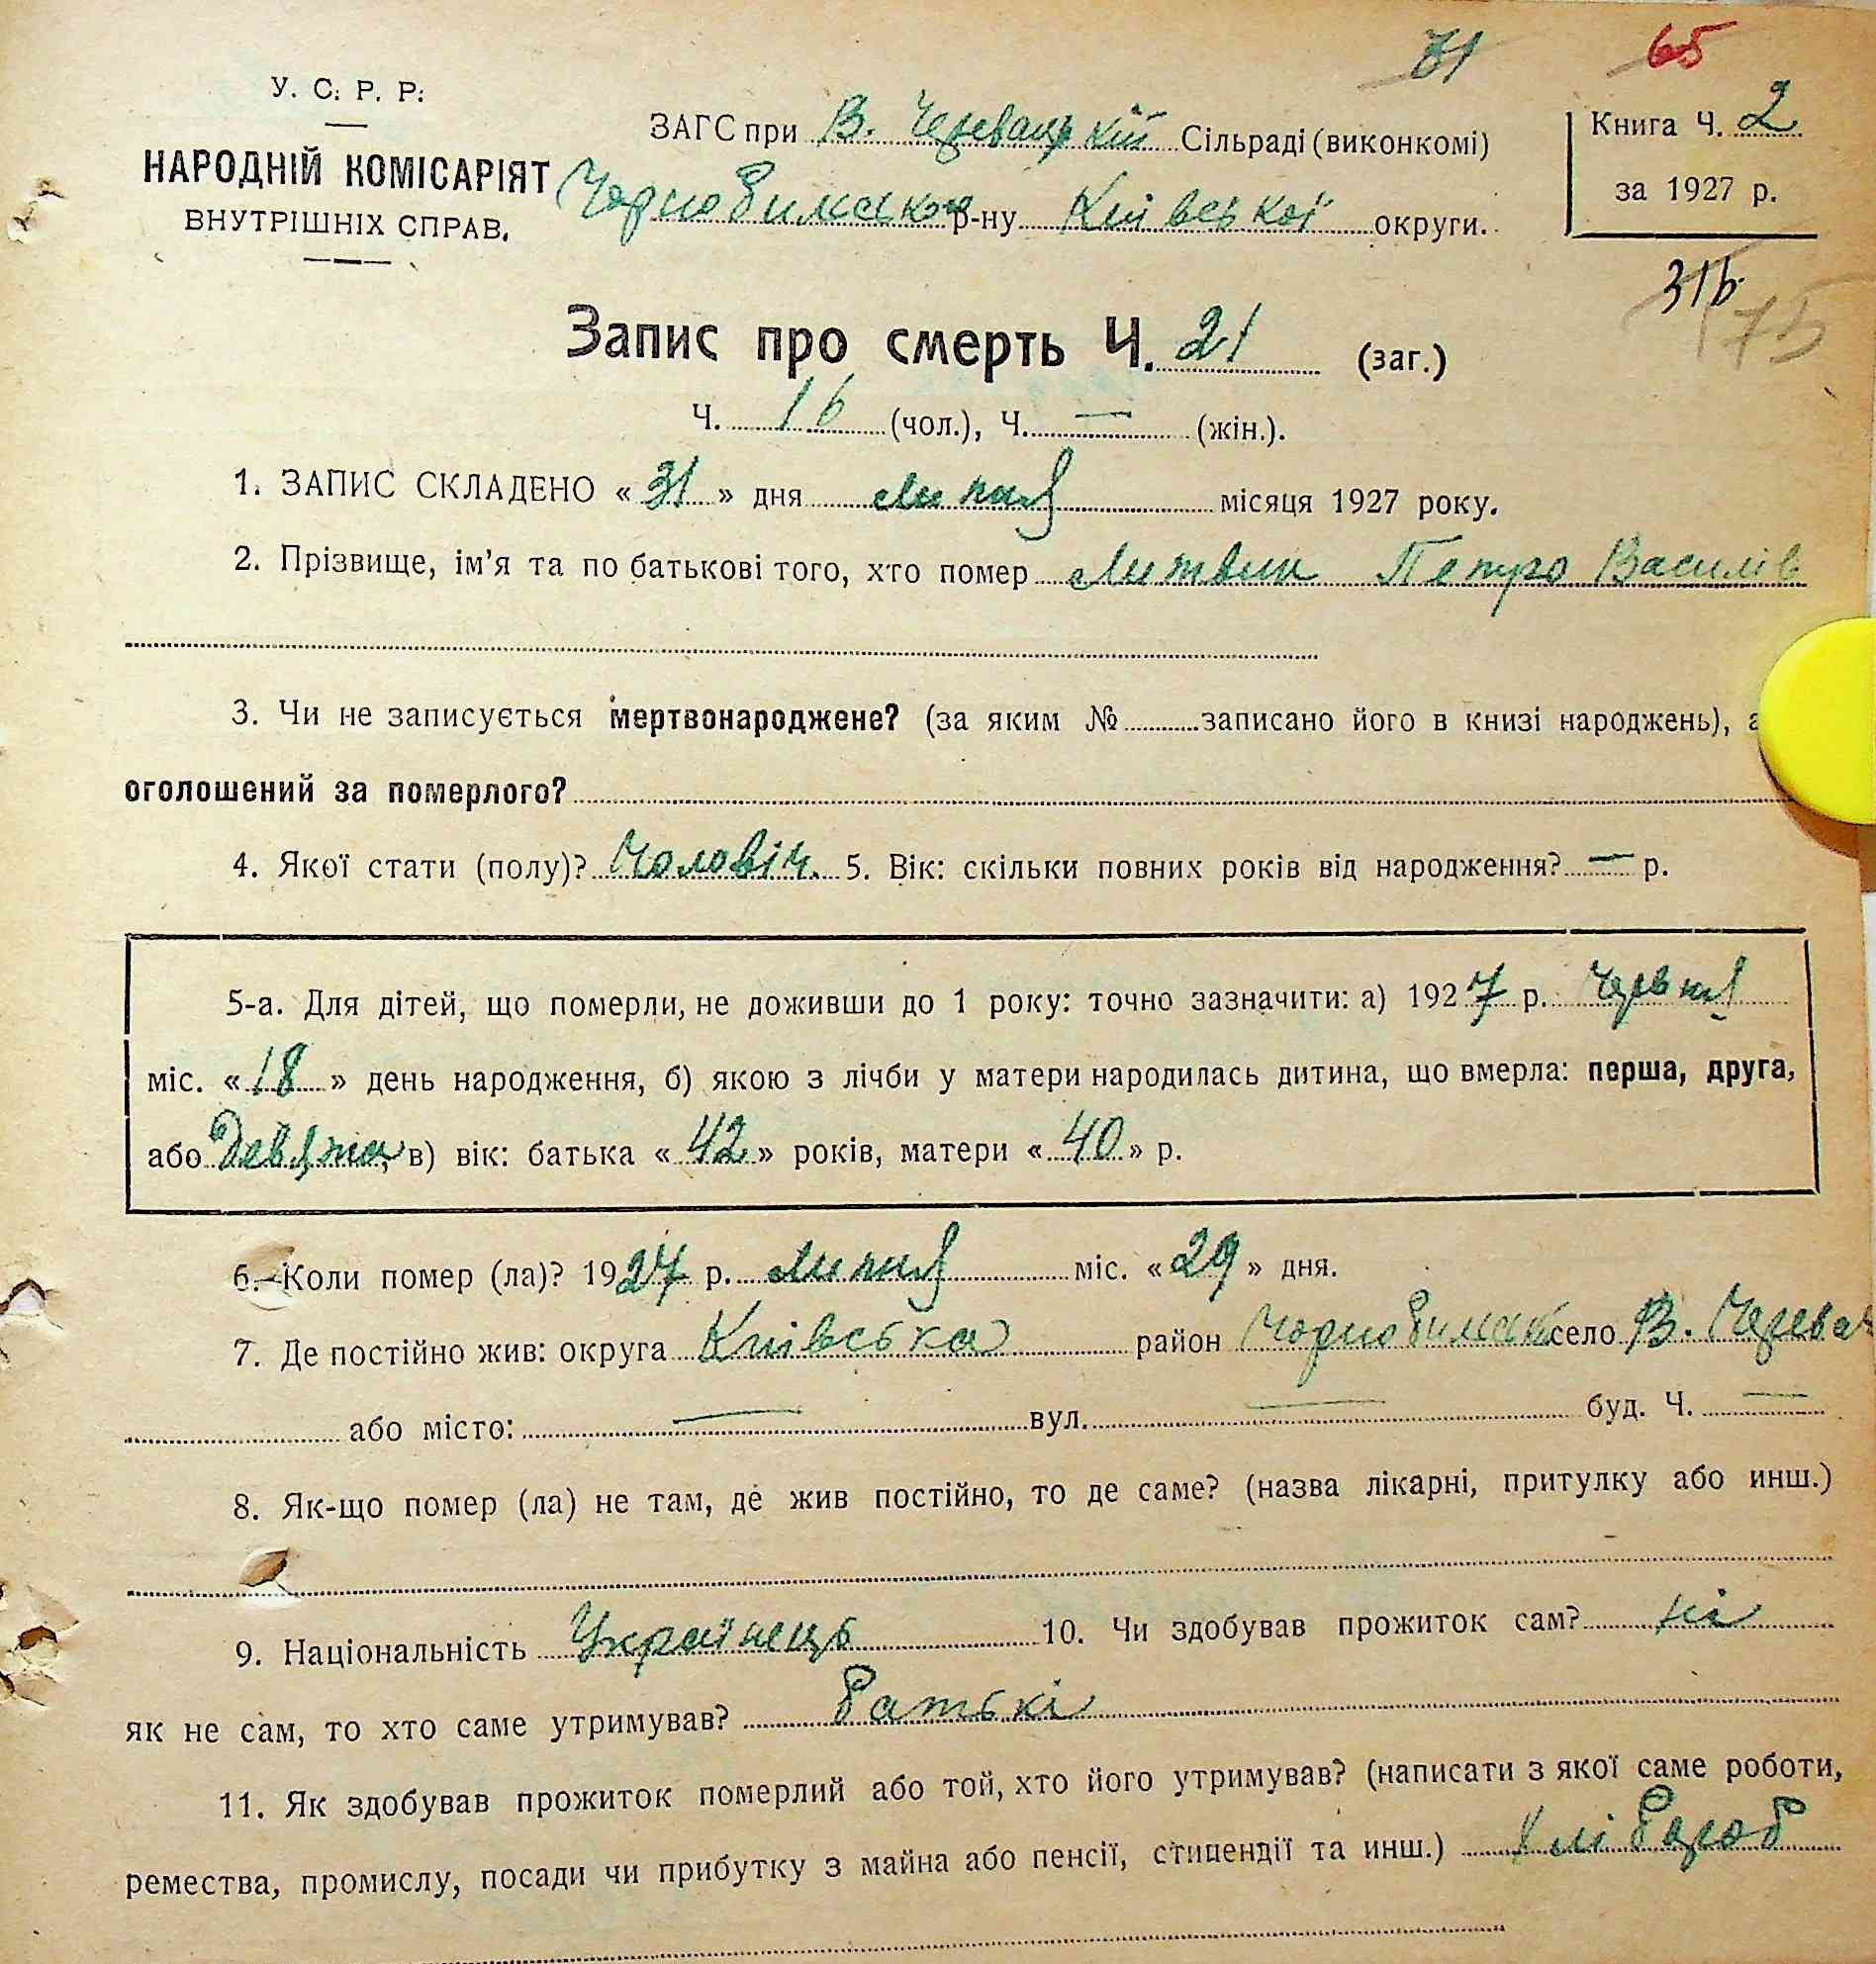 71 65
У. С. Р. Р.
НАРОДНІЙ КОМІСАРІЯТ
ВНУТРІШНІХ СПРАВ.
ЗАГС при В. Черевацькій Сільраді (виконкомі)
Чорнобильсько р-ну Київської округи.
Книга Ч. 2
за 1927 р.
316
175
Запис про смерть Ч. 21 (заг.)
Ч. 16 (чол.), Ч. — (жін.).
1. ЗАПИС СКЛАДЕНО « 31 » дня липня місяця 1927 року.
2. Прізвище, ім'я та по батькові того, хто помер Литвин Петро Василів
3. Чи не записується мертвонароджене? (за яким № записано його в книзі народжень), а
оголошений за померлого?
4. Якої стати (полу)? Чоловіч. 5. Вік: скільки повних років від народження? — р.
5-а. Для дітей, що померли, не доживши до 1 року: точно зазначити: а) 1927 р. Червня
міс. « 18 » день народження, б) якою з лічби у матери народилась дитина, що вмерла: перша, друга,
або Девята, в) вік: батька « 42 » років, матери « 40 » р.
6. Коли помер (ла)? 1927 р. липня міс. « 29 » дня.
7. Де постійно жив: округа Київська район Чорнобильськ село В. Черевач
або місто: — вул. — буд. Ч. —
8. Як-що помер (ла) не там, де жив постійно, то де саме? (назва лікарні, притулку або инш.)
9. Національність Українець 10. Чи здобував прожиток сам? ні
як не сам, то хто саме утримував? батькі
11. Як здобував прожиток померлий або той, хто його утримував? (написати з якої саме роботи,
ремества, промислу, посади чи прибутку з майна або пенсії, стипендії та инш.) хлібороб